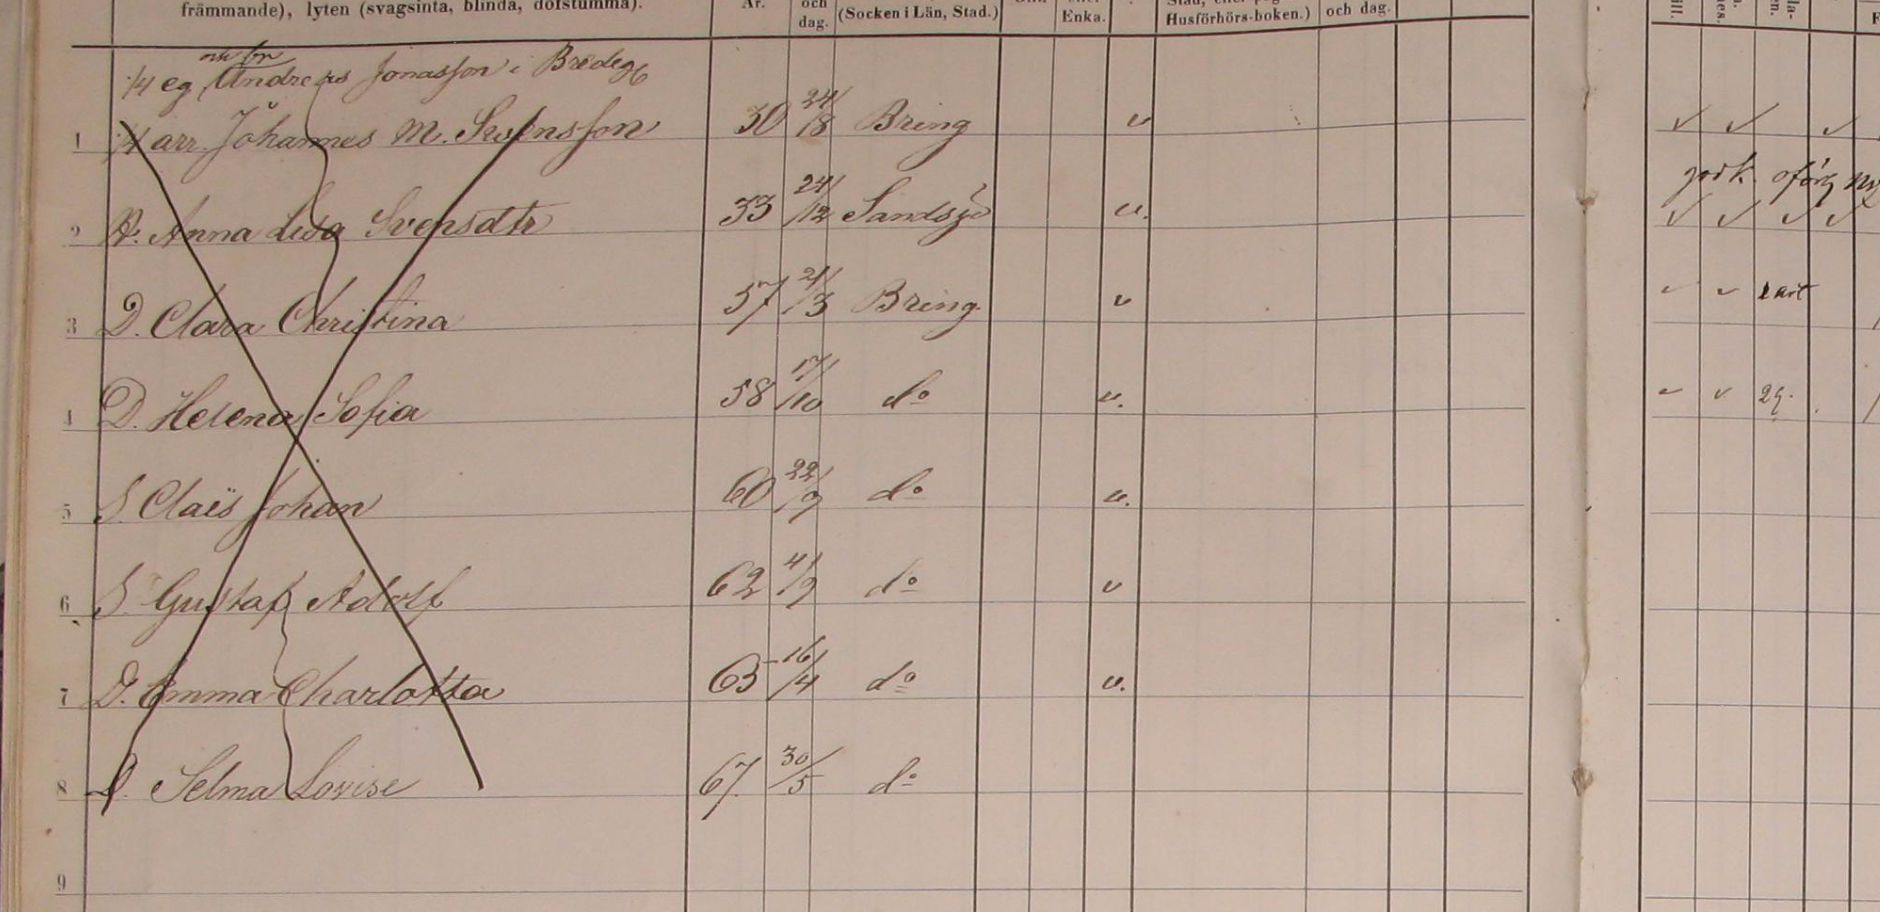 främmande), lyten (svagsinta, blinda, döfstumma). År. och dag. (Socken i Län, Stad.) Enka. Husförhörs-boken.) och dag.
1/4 eg Andreas Jonasson i Bredeg
1 1/4 arr. Johannes M. Svensson 30 24/8 Bring v
godk. oförg
2 H. Anna Lisa Svensdtr 33 24/12 Sandsjö v.
3 D. Clara Christina 57 21/3 Bring. v
4 D. Helena Sofia 58 17/10 do v.
5 S. Claës Johan 60 22/9 do v.
6 S. Gustaf Adolf 62 4/9 do v
7 D. Emma Charlotta 65 16/4 do v.
8 D. Selma Lovise 67. 30/5 do
9